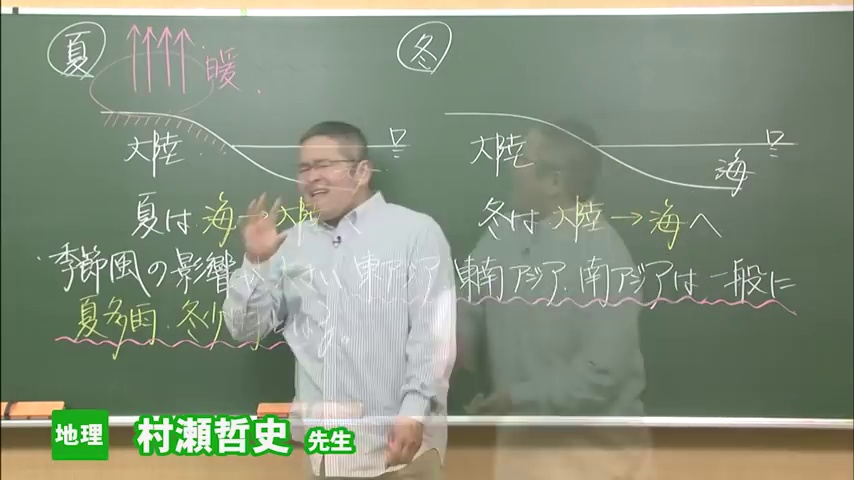 夏
冬
暖
大陸
大陸
海
夏は 海→大陸へ
冬は 大陸→海へ
季節風の影響が大きい東アジア、東南アジア、南アジアは一般に
夏多雨・冬少
地理 村瀬哲史 先生